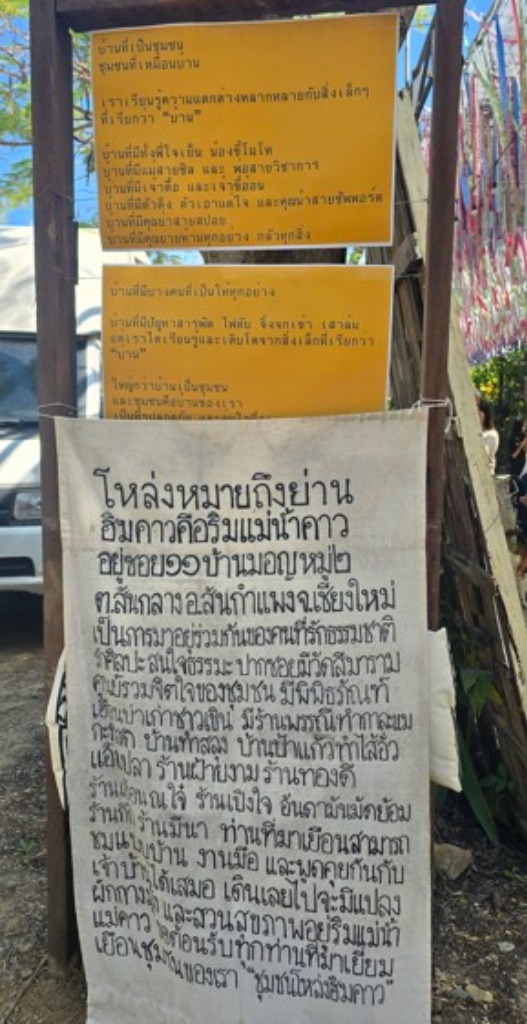 บ้านที่เป็นชุมชน
ชุมชนที่เหมือนบ้าน
เราเรียนรู้ความแตกต่างหลากหลายกับสิ่งเล็กๆ
ที่เรียกว่า “บ้าน”
บ้านที่มีทั้งพี่ใจเย็น น้องขี้โมโห
บ้านที่มีแม่สายชิล และ พ่อสายวิชาการ
บ้านที่มีเจ้าดื้อ และเจ้าขี้อ้อน
บ้านที่มีตัวตึง ตัวเอาแต่ใจ และคุณน้าสายซัพพอร์ต
บ้านที่มีคุณยายสายสปอย
บ้านที่มีคุณยายห้ามทุกอย่าง กลัวทุกสิ่ง
บ้านที่มีบางคนที่เป็นให้ทุกอย่าง
บ้านที่มีปัญหาสารพัด ไฟดับ จิ้งจกเข้า เสาล้ม
แต่เราได้เรียนรู้และเติบโตจากสิ่งเล็กที่เรียกว่า
“บ้าน”
ใหญ่กว่าบ้านเป็นชุมชน
และชุมชนคือบ้านของเรา
โหล่งหมายถึงย่าน
ฮิมคาวคือริมแม่น้ำคาว
อยู่ซอย๑๑บ้านมอญหมู่๒
ต.สันกลาง อ.สันกำแพง จ.เชียงใหม่
เป็นการมาอยู่ร่วมกันของคนที่รักธรรมชาติ
รักศิลปะ สนใจธรรมะ ปากซอยมีวัดสีมาราม
ศูนย์รวมจิตใจของชุมชน มีพิพิธภัณฑ์
เฮือนบ่าเก่าชาวเขิน มีร้านพรรณีทำกาละแม
บ้านทำสลุง บ้านป้าแก้วทำไส้อั่ว
แอ็บปลา ร้านฝ้ายงาม ร้านทองดี
ร้าน ณใจ๋ ร้านเปิงใจ อันดามันมัดย้อม
ร้าน ร้านมีนา ท่านที่มาเยือนสามารถ
ชม บ้าน งานมือ และพูดคุยกันกับ
เจ้าบ้านได้เสมอ เดินเลยไปจะมีแปลง
ผัก และสวนสุขภาพอยู่ริมแม่น้ำ
แม่คาว ต้อนรับทุกท่านที่มาเยี่ยม
เยือนชุมชนของเรา “ชุมชนโหล่งฮิมคาว”